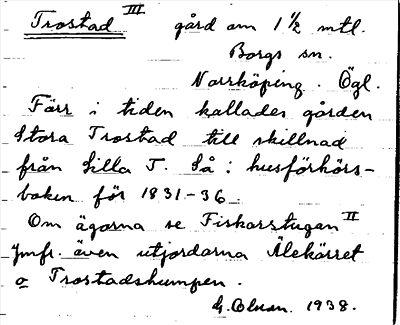 Trostad III gård om 1 1/2 mtl.
Borgs sn.
Norrköping. Ögl.
Förr i tiden kallades gården
Stora Trostad till skillnad
från Lilla T. Så i husförhörs-
boken för 1831-36.
Om ägorna se Fiskarstugan II
Jmfr. även utjordarna Ålekärret
o Trostadshumpen.
1938.